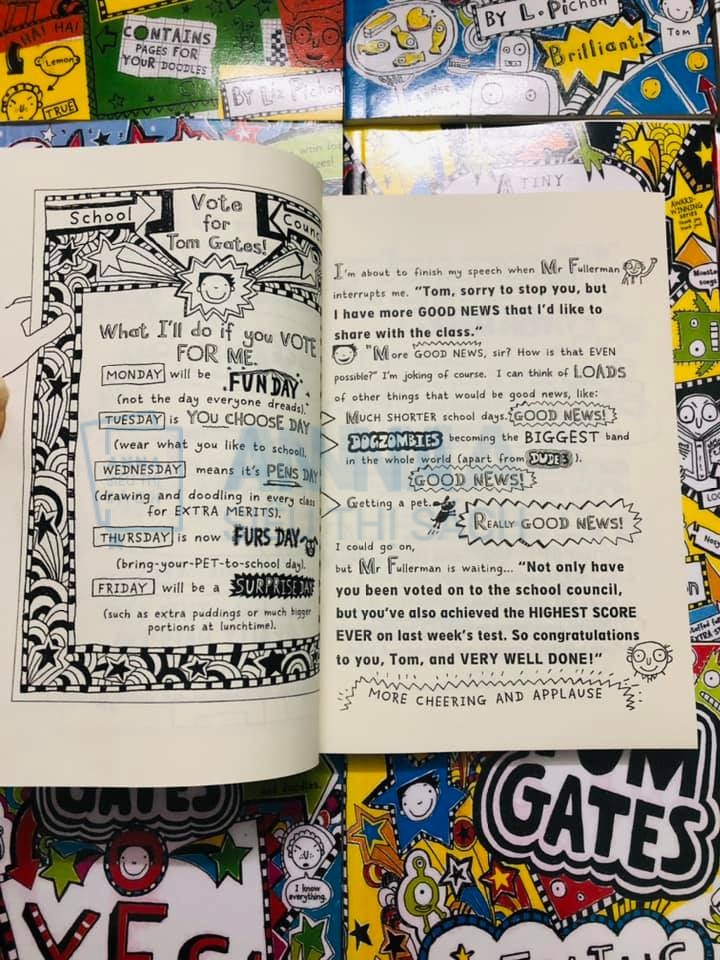 HA! HA!
Lemon
TRUE
CONTAINS
PAGES FOR
YOUR DOODLES
BY Liz Pichon
BY L. Pichon
Brilliant!
Tom
A TINY
AWARD-
WINNING
series
School
Vote
for
Tom Gates!
What I'll do if you VOTE
FOR ME.
MONDAY will be FUN DAY
(not the day everyone dreads).
TUESDAY is YOU CHOOSE DAY
(wear what you like to school).
WEDNESDAY means it's PENS DAY
(drawing and doodling in every class
for EXTRA MERITS).
THURSDAY is now FURS DAY
(bring-your-PET-to-school day).
FRIDAY will be a SURPRISE DAY
(such as extra puddings or much bigger
portions at lunchtime).
I'm about to finish my speech when Mr Fullerman
interrupts me. "Tom, sorry to stop you, but
I have more GOOD NEWS that I'd like to
share with the class."
"More GOOD NEWS, sir? How is that EVEN
possible?" I'm joking of course. I can think of LOADS
of other things that would be good news, like:
MUCH SHORTER school days. GOOD NEWS!
DOGZOMBIES becoming the BIGGEST band
in the whole world (apart from DUDE3).
GOOD NEWS!
Getting a pet. REALLY GOOD NEWS!
I could go on,
but Mr Fullerman is waiting... "Not only have
you been voted on to the school council,
but you've also achieved the HIGHEST SCORE
EVER on last week's test. So congratulations
to you, Tom, and VERY WELL DONE!"
MORE CHEERING AND APPLAUSE
SIÊU THỊ SÁCH
GATES
YES
I know
everything.
TOM
GATES